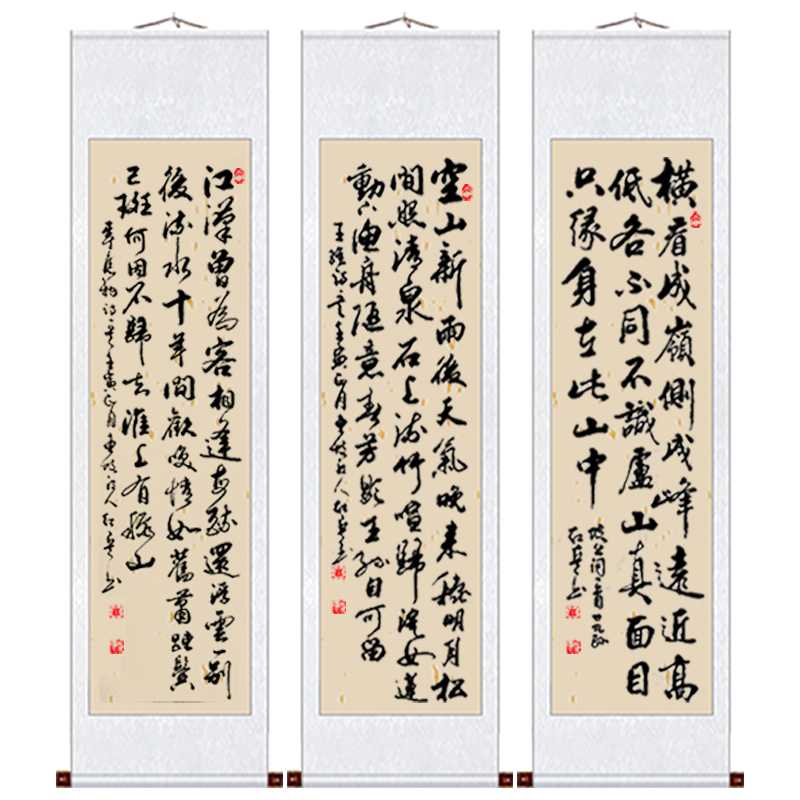 横看成嶺側成峰遠近高
低各不同不識盧山真面目
只緣身在此山中
空山新雨後天氣晚来穐明月松
間照清泉石上流竹喧歸浣女蓮
動下漁舟随意春芳歇王孫自可留
王維詩一首壬寅
江漢曾為客相逢每醉還浮雲一别
後流水十年間歡笑情如舊蕭疏鬢
已斑何因不歸去淮上有穐山
韋應物詩一首壬寅